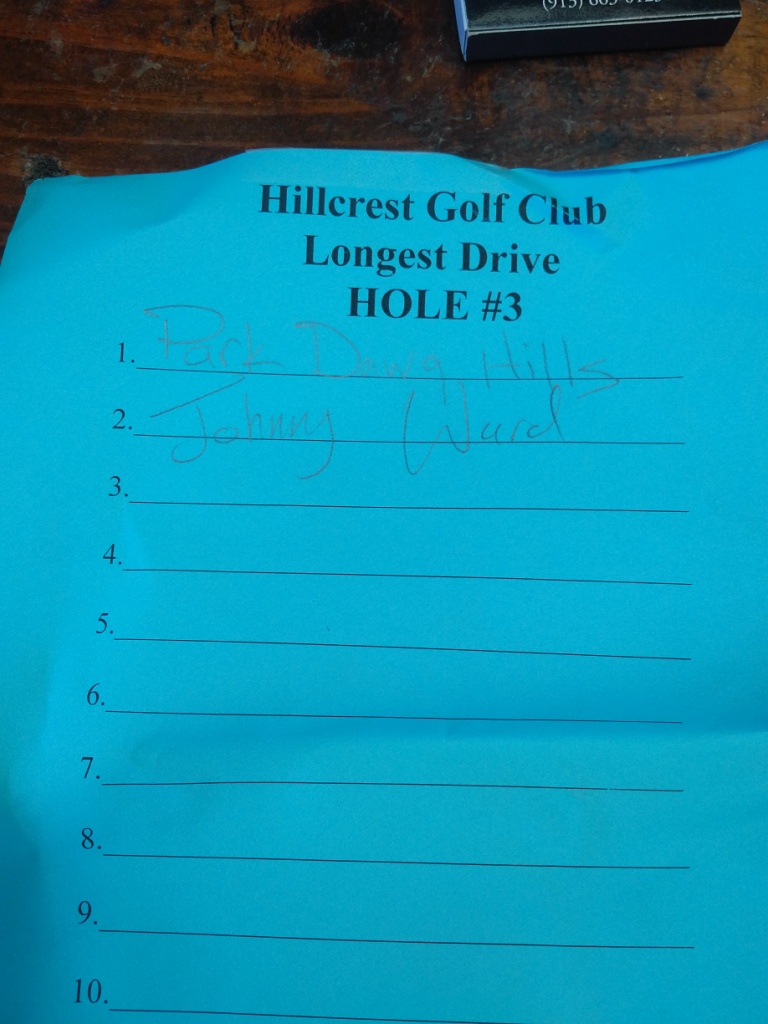 Hillcrest Golf Club
Longest Drive
HOLE #3
1. Park Dawg Hills
2. Johnny Ward
3.
4.
5.
6.
7.
8.
9.
10.